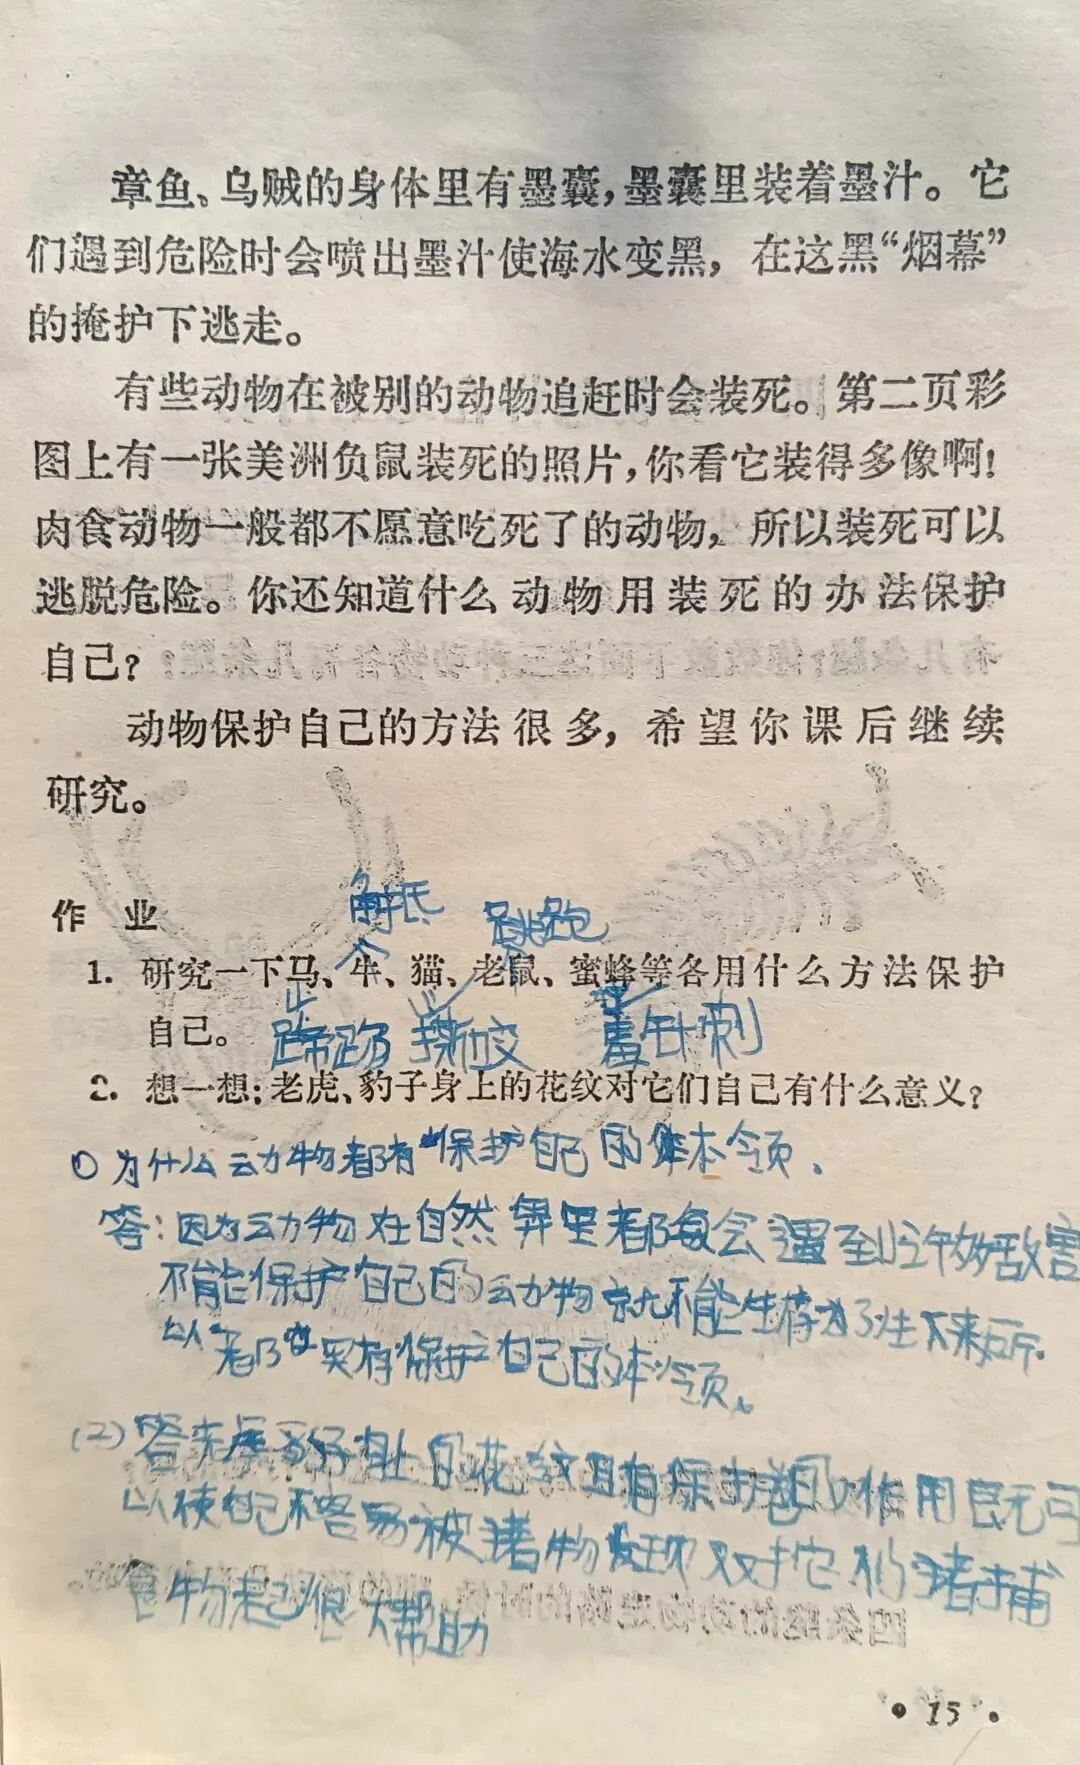 章鱼、乌贼的身体里有墨囊，墨囊里装着墨汁。它
们遇到危险时会喷出墨汁使海水变黑，在这黑“烟幕”
的掩护下逃走。
有些动物在被别的动物追赶时会装死。第二页彩
图上有一张美洲负鼠装死的照片，你看它装得多像啊！
肉食动物一般都不愿意吃死了的动物，所以装死可以
逃脱危险。你还知道什么动物用装死的办法保护
自己？
动物保护自己的方法很多，希望你课后继续
研究。
作业
角抵
跳跑
1. 研究一下马、牛、猫、老鼠、蜜蜂等各用什么方法保护
自己。
蹄 咬 针刺
2. 想一想：老虎、豹子身上的花纹对它们自己有什么意义？
① 为什么动物都有保护自己的本领。
答：因为动物在自然界里都会遇到许多敌害
不能保护自己的动物就不能生存 下来所
以都 有保护自己的本领。
(2) 答 豹子 的花纹 有保护 作用 可
以使自己不容易被猎物发现对它们猎捕
食物起很大帮助
· 15 ·